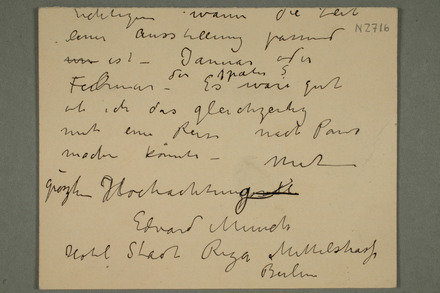 wann die Zeit
N2716
einer Ausstellung passend
ist – Januar oder
Februar – oder später? Es wäre gut
ob ich das gleichzeitig
mit eine Reise nach Paris
machen könnte – Mit
größten Hochachtung
Edvard Munch
Hotel Stadt Riga Mittelstrasse
Berlin